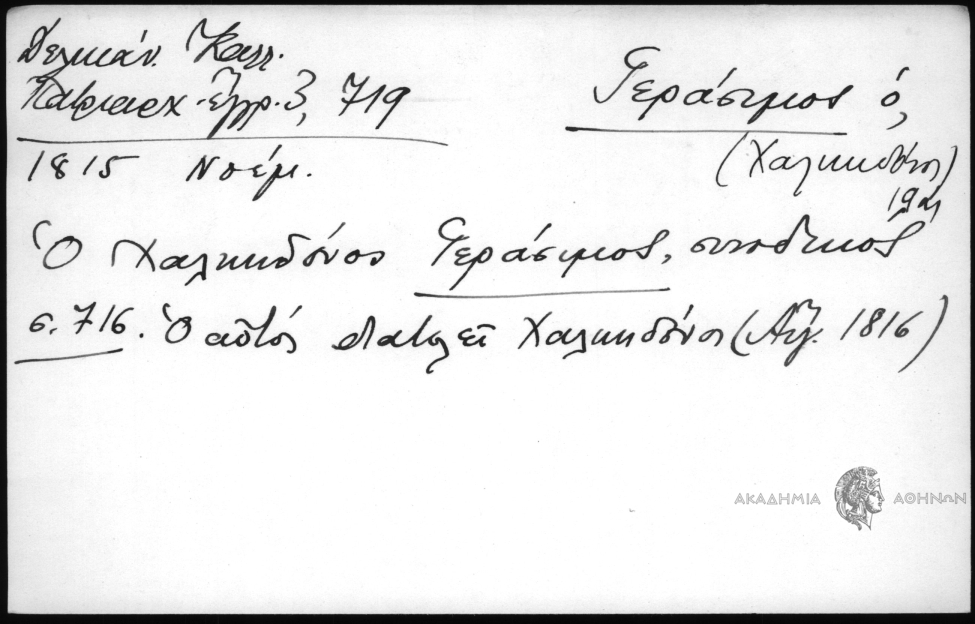 Δελικάν. Καλλ.
Πατριαρχ. ἔγγρ. 3, 719
Γεράσιμος ὁ,
(Χαλκηδόνος)
19 αἰ
1815 Νοέμ.
Ὁ Χαλκηδόνος Γεράσιμος, συνοδικός
σ. 716. Ὁ αὐτός διατελεῖ Χαλκηδόνος (Αὔγ. 1816)
ΑΚΑΔΗΜΙΑ ΑΘΗΝΩΝ